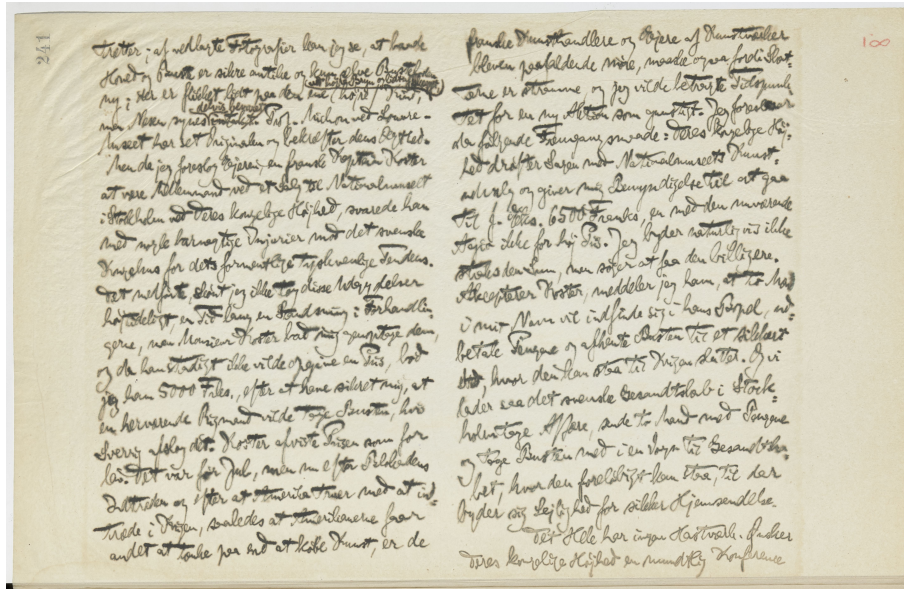 241
100
træffer; af vedlagte Fotografier kan jeg se, at baade
Hoved og Buste er sikre antike og kun
ny; Her er flikket lidt paa den ene
men Næsen, synes Prof. Michon ved Louvre-
Museet har set Originalen og bekræfter dens Ægthed.
Men da jeg foreslog Ejeren, en fransk Kaptain Koster
at være Mellemmand ved et Salg til Nationalmuseet
i Stockholm ved Deres kongelige Højhed, svarede han
med nogle harmagtige Injurier mod det svenske
Kongehus for dets formentlige tyskvenlige Tendens.
Det medførte, skønt jeg ikke tog disse
højtideligt, en Tid lang en Standsning i Forhandlin-
gerne, men Monsieur Koster bad mig genoptage dem,
og da han stadigt ikke vilde opgive en Pris, bød
jeg ham 5000 Frcs., efter at have sikret mig, at
en herværende Rigmand vilde tage Busten, hvis
Sverrig afslog det. Koster afviste Prisen som for
lav. Det var før Jul, men nu efter Blokadens
Indtræden og efter at Amerika truer med at ind-
træde i Krigen, saaledes at Amerikanerne faar
andet at tænke paa end at købe Kunst, er de
franske Kunsthandlere og Ejere af Kunstværker
bleven paafaldende møre, maaske ogsaa fordi Skat-
terne er strænge og jeg vilde betragte Tidspunk-
tet for en ny Aktion som gunstigt. Jeg foreslaar
da følgende Fremgangsmaade: Deres kongelige Høj-
hed drøfter Sagen med Nationalmuseets Kunst-
udvalg og giver mig Bemyndigelse til at gaa
til f. Eks. 6500 Francs, en med den nuværende
ikke for høj Pris. Jeg byder naturligvis ikke
straks den Sum, men søger at faa den billigere.
Accepterer Koster, meddeler jeg ham, at to Mænd
i mit Navn vil indfinde sig i hans Bopæl, ud-
betale Pengene og afhente Busten til et sikkert
Sted, hvor den kan staa til Krigen slutter. Og vi
lader saa det svenske Gesandtskab i Stock-
holm tage Affære, sende to Mand med Pengene
og tage Busten med i en Vogn til Gesandtska-
bet, hvor den foreløbigt kan staa, til der
byder sig Lejlighed for sikker Hjemsendelse.
Det Hele har ingen Hastværk. Ønsker
Deres kongelige Højhed en mundtlig Konference